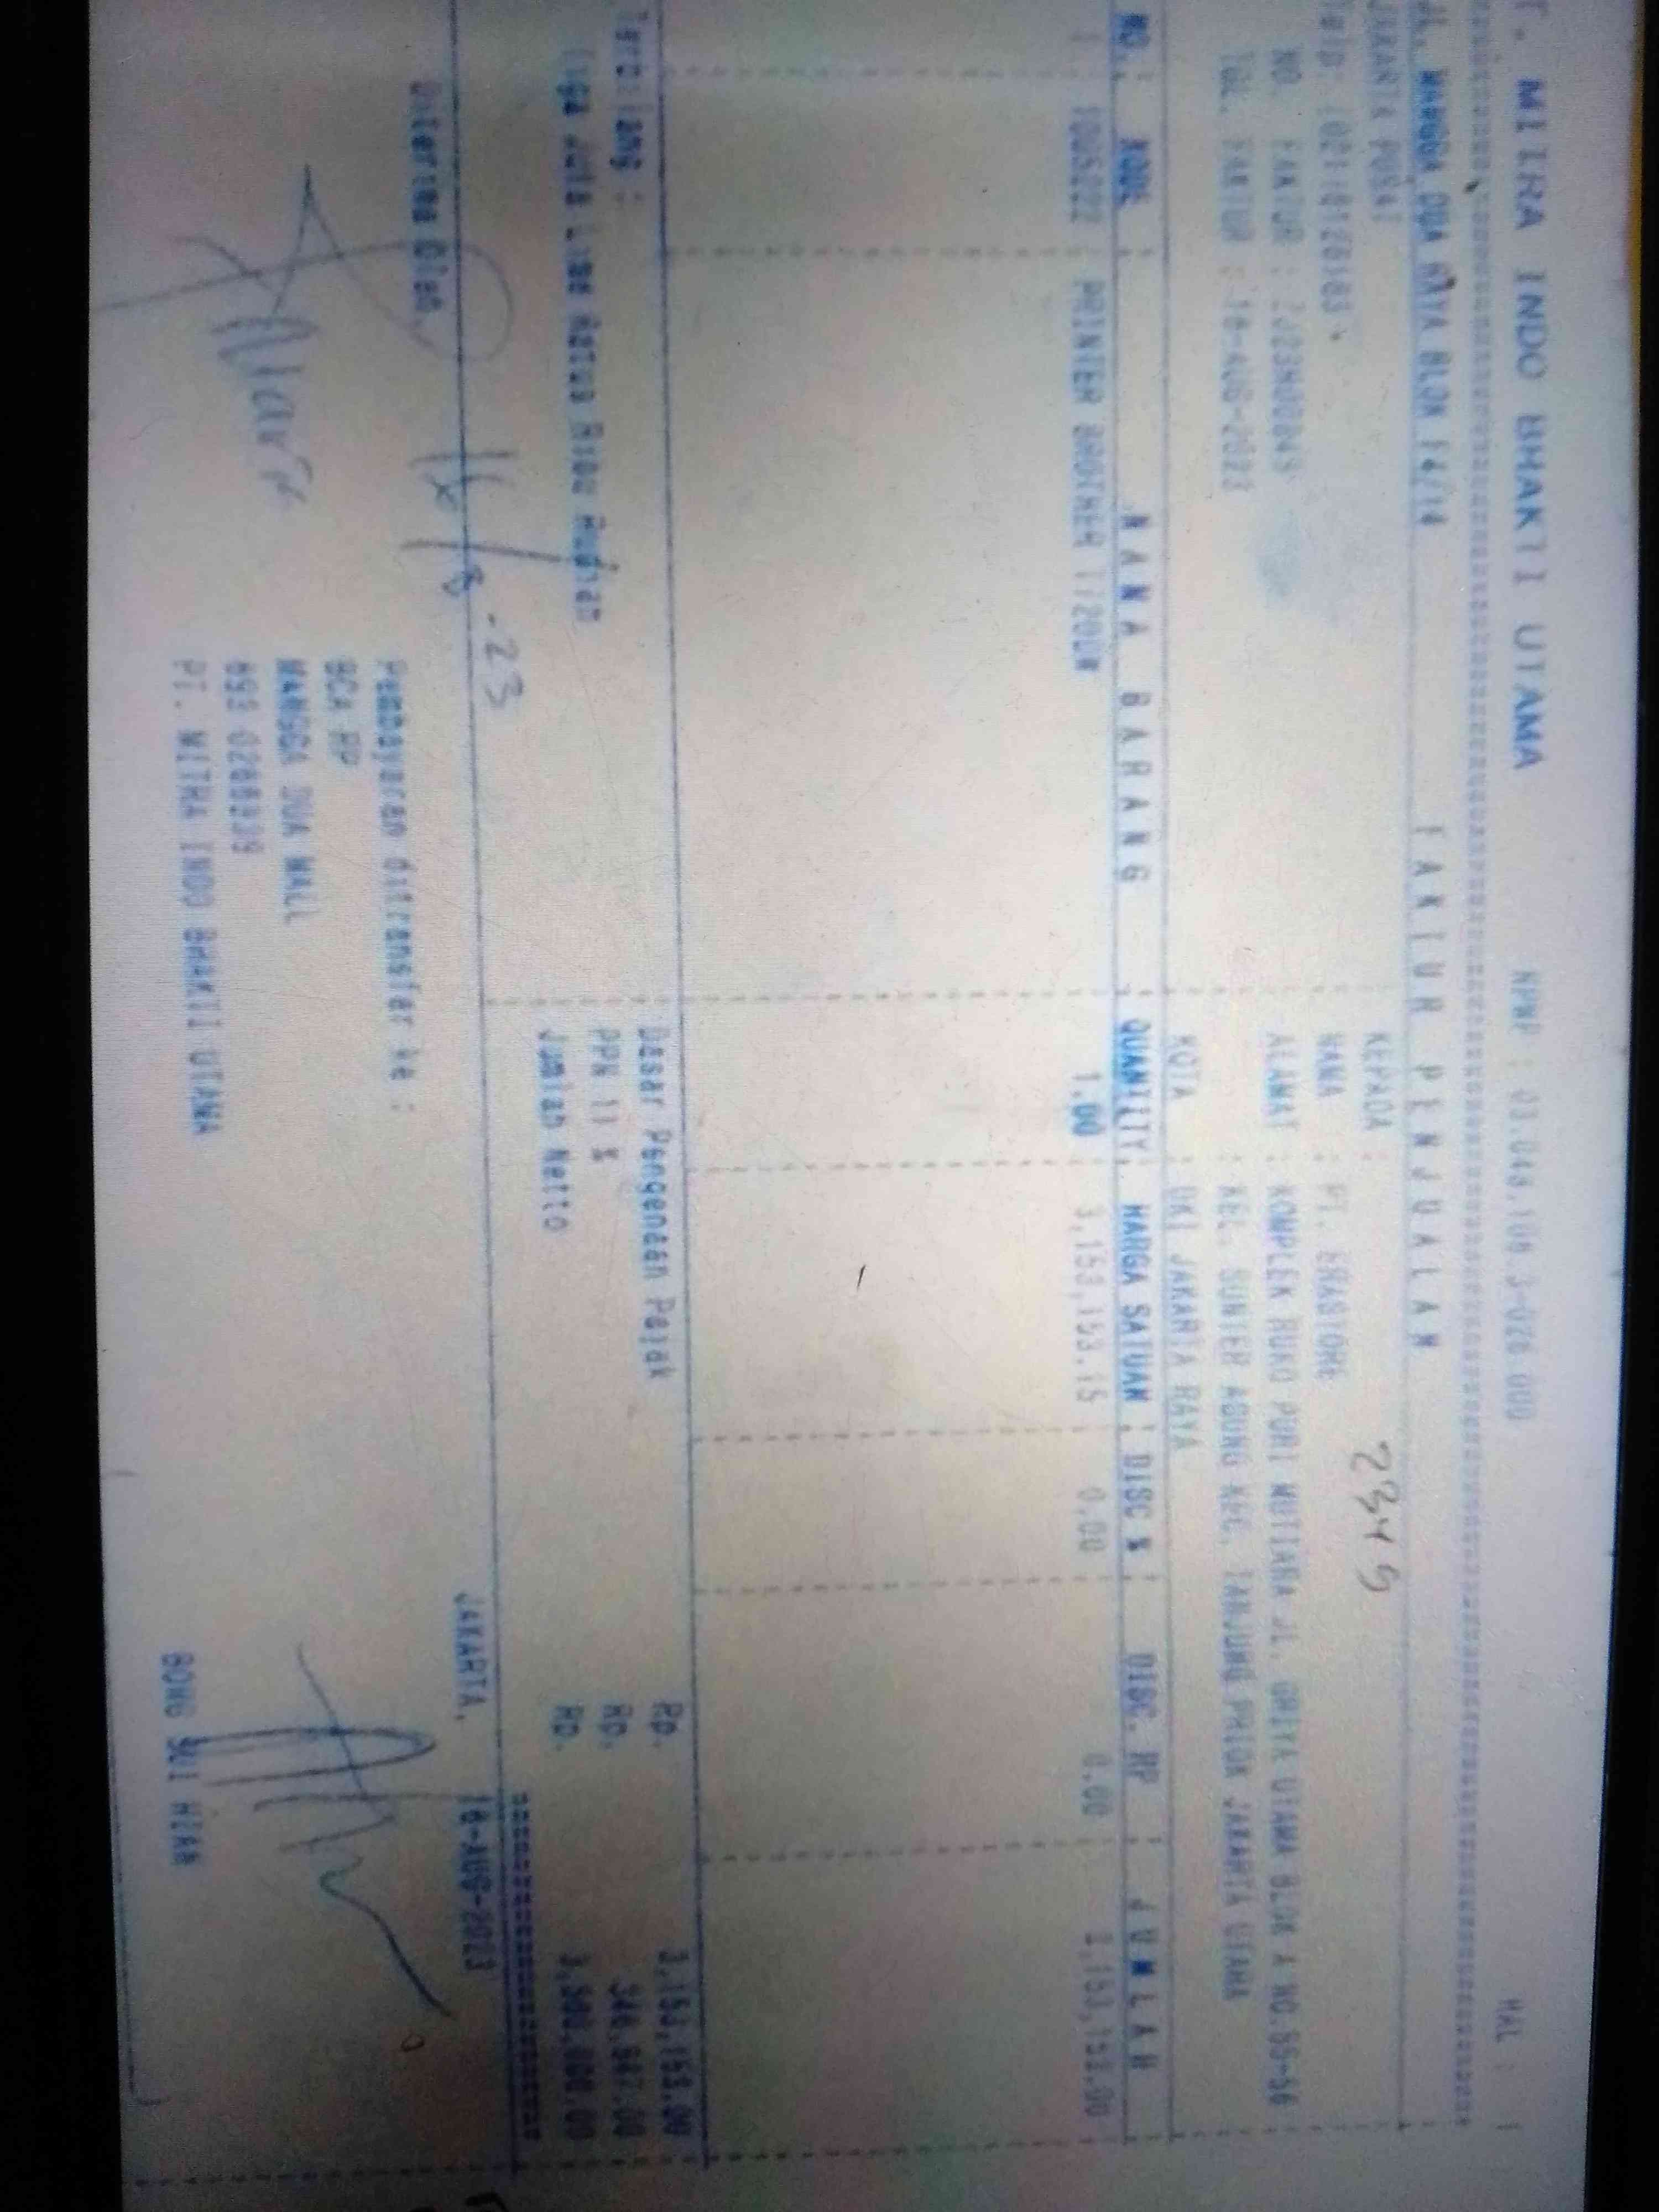 T. MITRA INDO BHAKTI UTAMA NPWP : HAL : 1
JL. MANGGA DUA RAYA BLOK F4/14 FAKTUR PENJUALAN
JAKARTA PUSAT KEPADA :
Telp: NAMA : PT. ERASTORE 2349
NO. FAKTUR : ALAMAT : KOMPLEK RUKO PURI MUTIARA JL. GRIYA UTAMA BLOK A NO.
TGL. FAKTUR : -AUG-2023 : KEL. SUNTER AGUNG KEC. TANJUNG PRIOK JAKARTA UTARA
KOTA : DKI JAKARTA RAYA
NO. KODE NAMA BARANG QUANTITY HARGA SATUAN DISC % DISC. RP JUMLAH
1 PRINTER BROTHER 1.00 3,153,153.15 0.00 0.00 3,153,153.00
Terbilang : Dasar Pengenaan Pajak Rp. 3,153,153.00
Tiga Juta Lima Ratus Ribu Rupiah PPN 11 % Rp. 346,847.00
Jumlah Netto Rp. 3,500,000.00
Diterima Oleh 8 -23 JAKARTA, -AUG-2023
Pembayaran ditransfer ke :
BCA RP
MANGGA DUA MALL
PT. MITRA INDO BHAKTI UTAMA BONG SUI HIAN